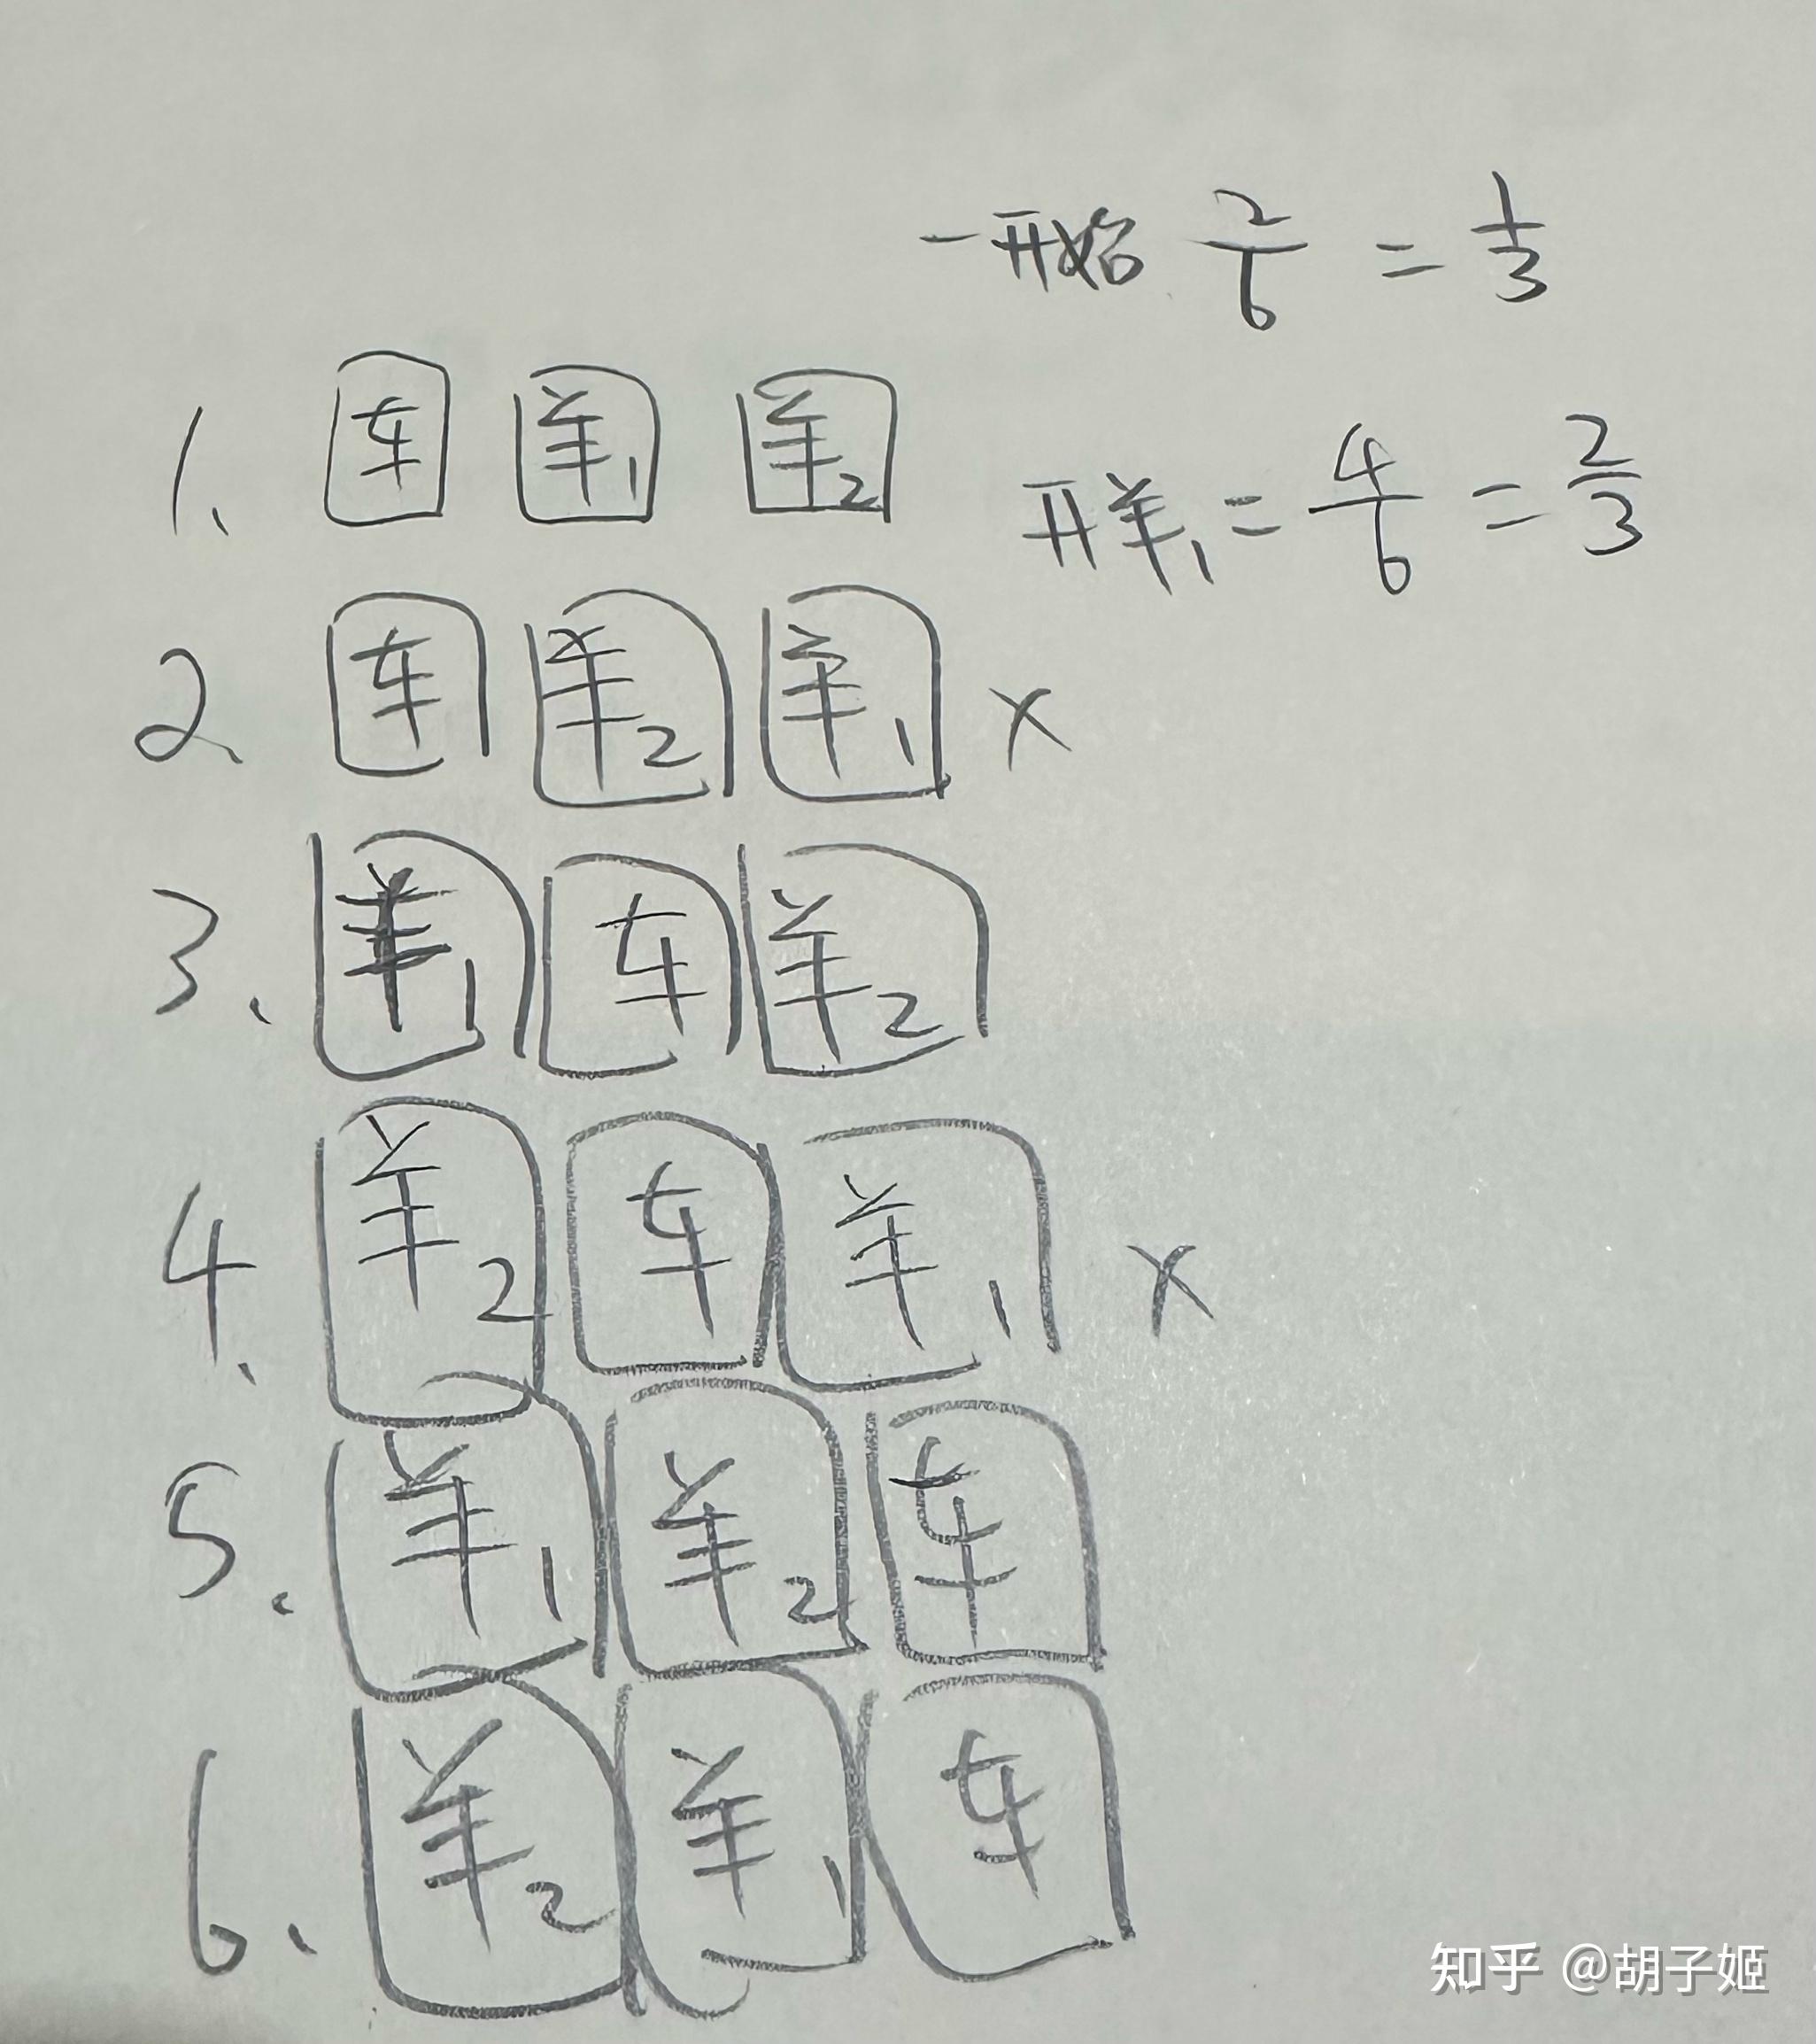 一开始 2/6 = 1/3
1. 车 羊1 羊2
开羊1 = 4/6 = 2/3
2. 车 羊2 羊1 ×
3. 羊1 车 羊2
4. 羊2 车 羊1 ×
5. 羊1 羊2 车
6. 羊2 羊1 车
知乎 @胡子姬